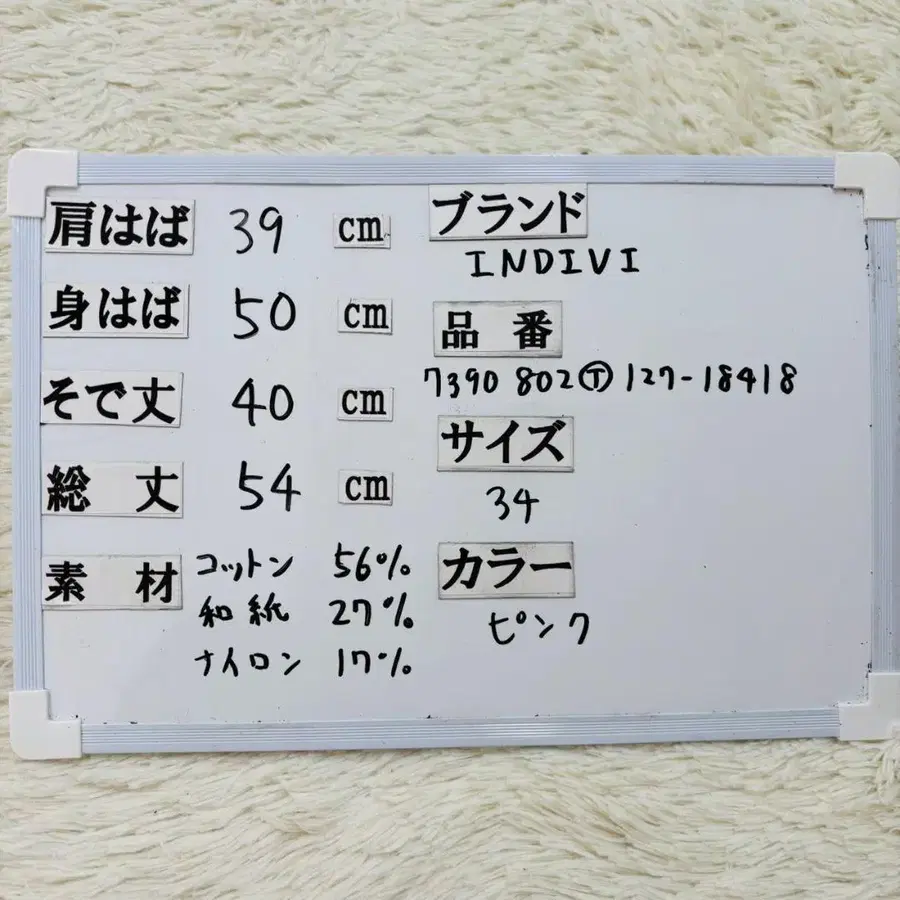 肩はば 39 cm
身はば 50 cm
そで丈 40 cm
総丈 54 cm
素材 コットン 56%
和紙 27%
ナイロン 17%
ブランド
INDIVI
品番
7390 802Ⓣ127-18418
サイズ
34
カラー
ピンク